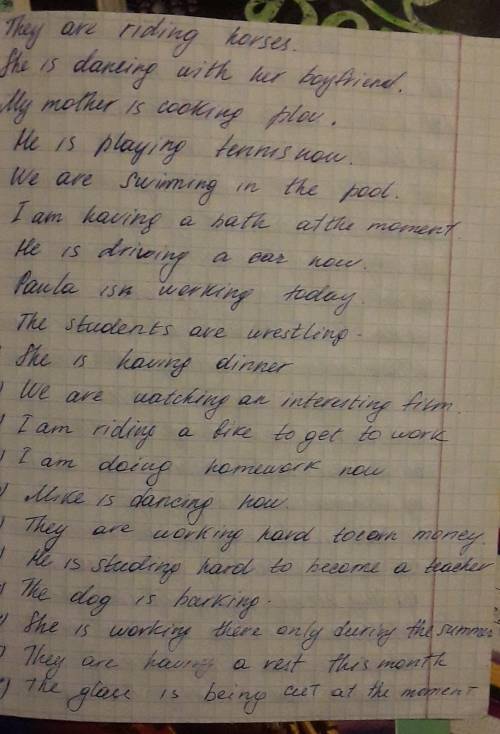 They are riding horses.
She is dancing with her boyfriend.
My mother is cooking plov.
He is playing tennis now.
We are swimming in the pool.
I am having a bath at the moment
He is driving a car now.
Paula isn working today.
The students are wrestling.
She is having dinner
) We are watching an interesting film.
) I am riding a bike to get to work
) I am doing homework now
) Mike is dancing now.
) They are working hard to earn money.
) He is studing hard to become a teacher
) The dog is barking.
) She is working there only during the summer
) They are having a rest this month
) The glass is being cut at the moment